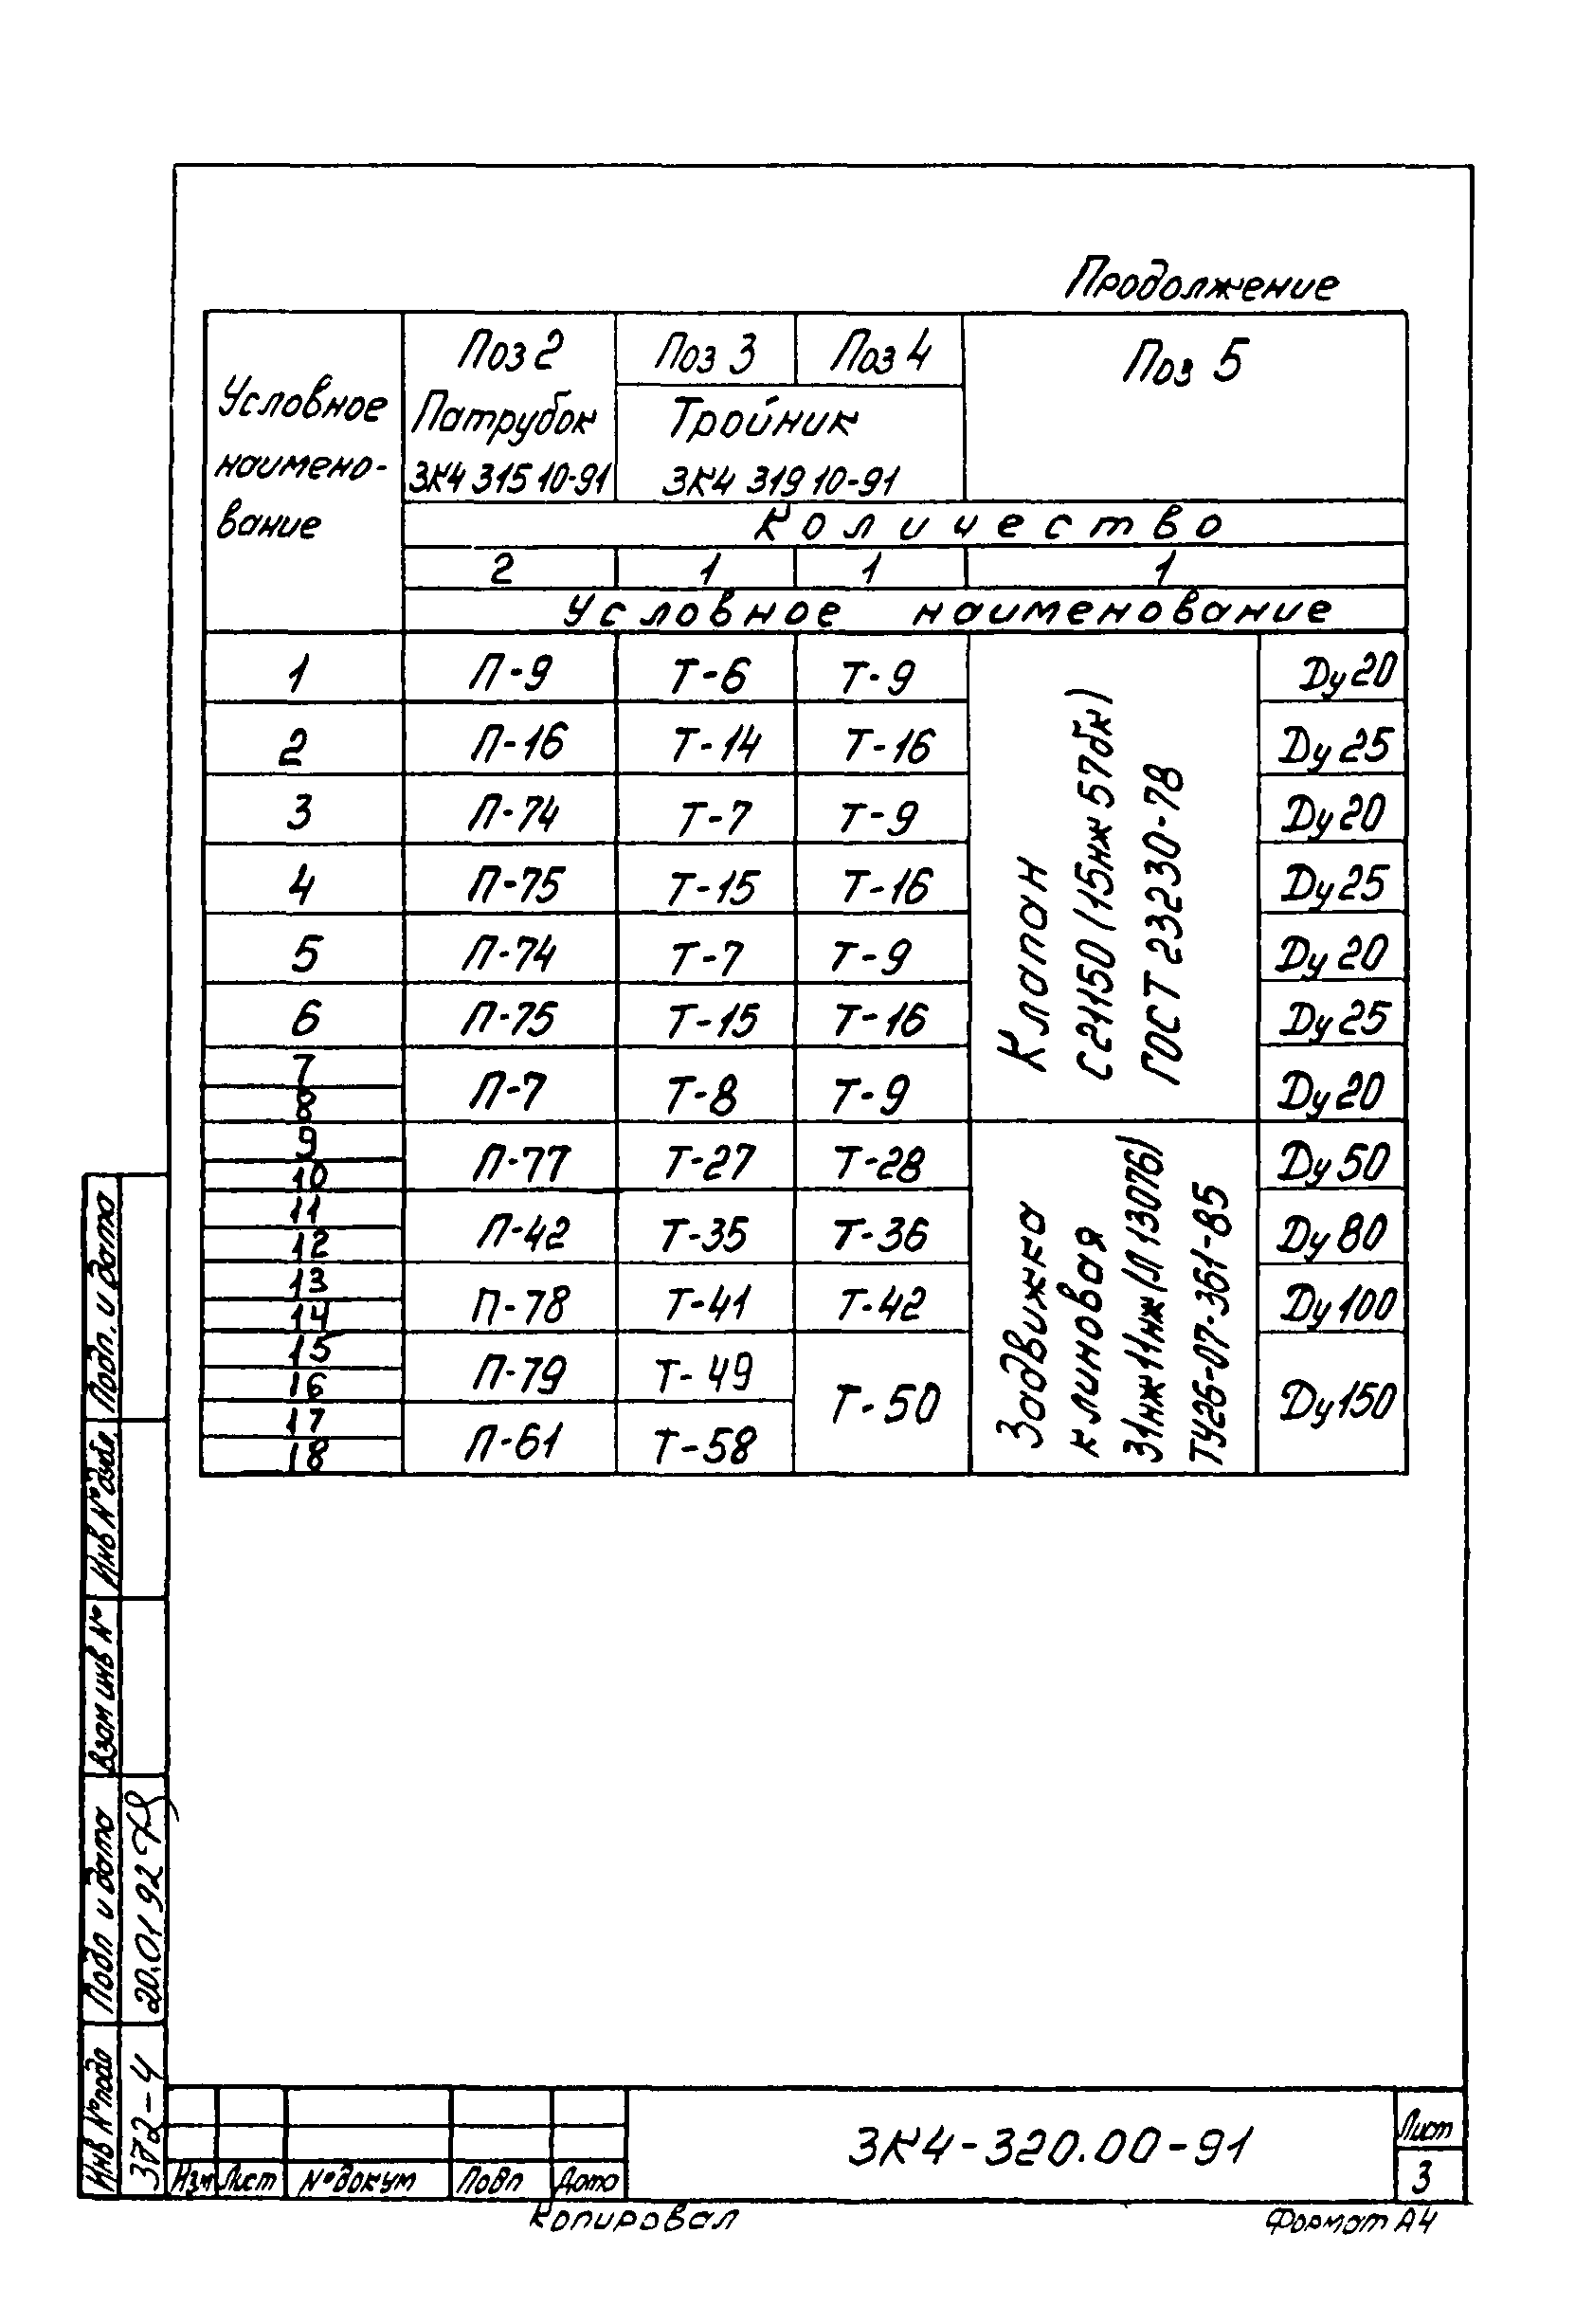 Продолжение
Условное наимено- вание
Поз 2
Поз 3
Поз 4
Поз 5
Патрубок
ЗК4 315 10-91
Тройник
ЗК4 319 10-91
Количество
2 1 1 1
Условное наименование
1 П-9 Т-6 Т-9 Ду 20
2 П-16 Т-14 Т-16 Ду 25
3 П-74 Т-7 Т-9 Ду 20
4 П-75 Т-15 Т-16 Ду 25
5 П-74 Т-7 Т-9 Ду 20
6 П-75 Т-15 Т-16 Ду 25
7
8
П-7 Т-8 Т-9 Ду 20
Клапан
С 21150 (15нж 57бк)
ГОСТ 23230-78
9
10
П-77 Т-27 Т-28 Ду 50
11
12
П-42 Т-35 Т-36 Ду 80
13
14
П-78 Т-41 Т-42 Ду 100
15
16
П-79 Т-49
17
18
П-61 Т-58
Т-50 Ду 150
Задвижка
клиновая
31нж11нж (Л 13076)
ТУ26-07-361-85
Подп. и дата
Инв № дубл.
Взам инв №
Подп и дата
20.01 92
Инв № подл
372-4
Изм Лист № докум Подп Дата
ЗК4-320.00-91
Лист
3
Копировал
Формат А4